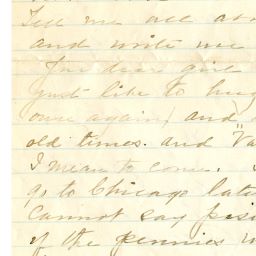 Tell me all abo
and write me
dear girl
just like to hug
once again, and
old times. and "Va
I mean to come.
go to Chicago late
Cannot say posi
if the pennies